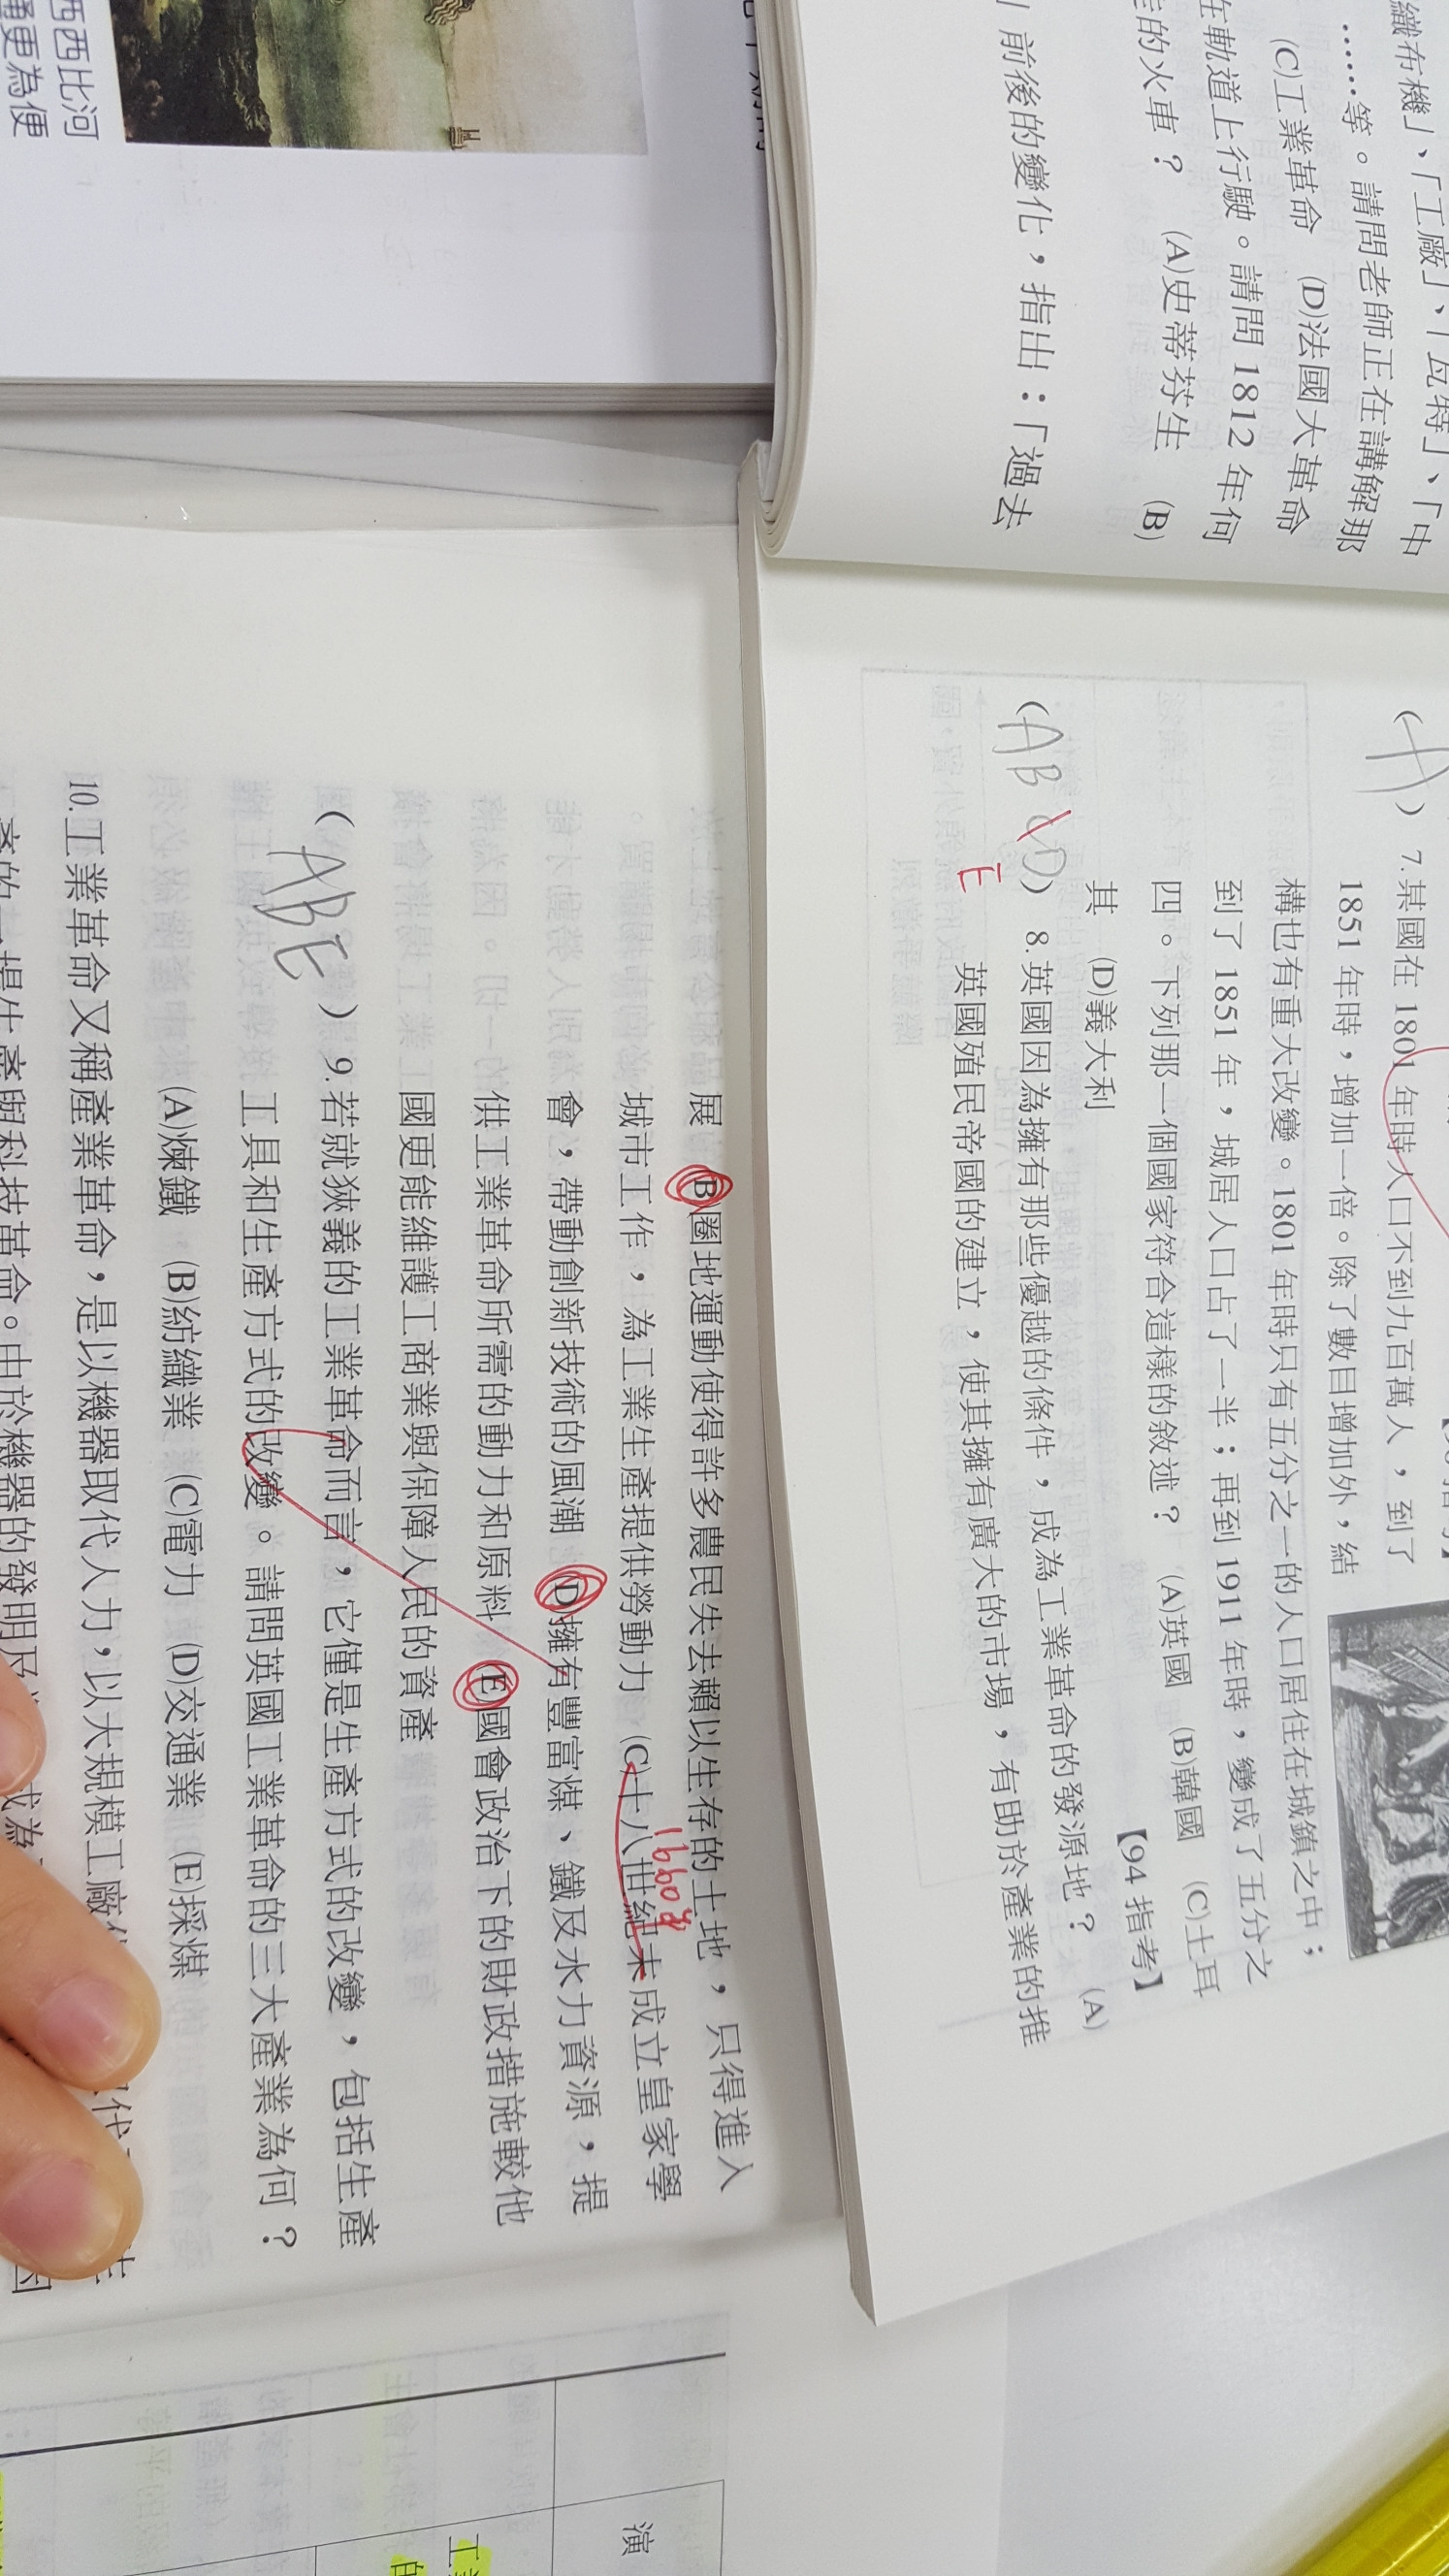 西西比河
更為便
織布機」、「工廠」、「瓦特」、「中
……等。請問老師正在講解那
(C)工業革命 (D)法國大革命
在軌道上行駛。請問 1812 年何
的火車？ (A)史蒂芬生 (B)
前後的變化，指出：「過去
(A) 7.某國在 1801 年時人口不到九百萬人，到了
1851 年時，增加一倍。除了數目增加外，結
構也有重大改變。1801 年時只有五分之一的人口居住在城鎮之中；
到了 1851 年，城居人口占了一半；再到 1911 年時，變成了五分之
四。下列那一個國家符合這樣的敘述？ (A)英國 (B)韓國 (C)土耳
其 (D)義大利 【94 指考】
(AB C D) 8.英國因為擁有那些優越的條件，成為工業革命的發源地？ (A)
E
英國殖民帝國的建立，使其擁有廣大的市場，有助於產業的推
展 (B)圈地運動使得許多農民失去賴以生存的土地，只得進入
1660's
城市工作，為工業生產提供勞動力 (C)十八世紀末成立皇家學
會，帶動創新技術的風潮 (D)擁有豐富煤、鐵及水力資源，提
供工業革命所需的動力和原料 (E)國會政治下的財政措施較他
國更能維護工商業與保障人民的資產
(ABE) 9.若就狹義的工業革命而言，它僅是生產方式的改變，包括生產
工具和生產方式的改變。請問英國工業革命的三大產業為何？
(A)煉鐵 (B)紡織業 (C)電力 (D)交通業 (E)採煤
10.工業革命又稱產業革命，是以機器取代人力，以大規模工廠
的一場生產與科技革命。由於機器的發明及
成為
因
演
工